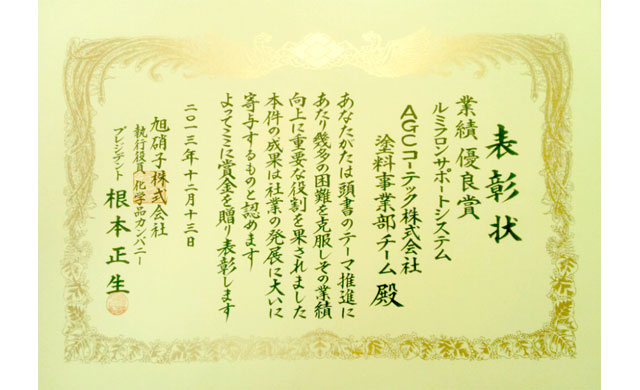 表彰状
業績 優良賞
ルミフロンサポートシステム
AGCコーテック株式会社
塗料事業部チーム 殿
あなたがたは頭書のテーマ推進に
あたり幾多の困難を克服しその業績
向上に重要な役割を果されました
本件の成果は社業の発展に大いに
寄与するものと認めます
よってここに賞金を贈り表彰します
二〇一三年十二月十三日
旭硝子株式会社
執行役員 化学品カンパニー
プレジデント 根本正生